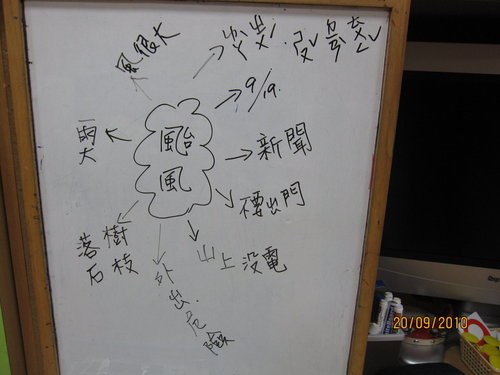 風很大
9/19.
雨大
颱
風
新聞
不要出門
樹枝
落石
山上沒電
外出危險
20/09/2010